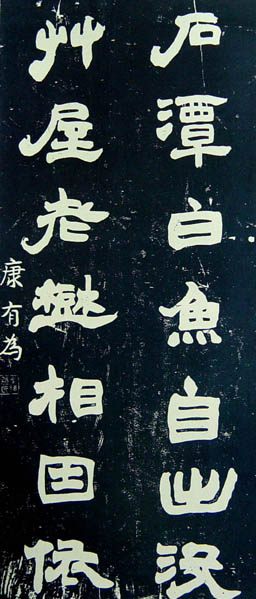 石潭白魚自出沒
艸屋老樹相因依
康有為